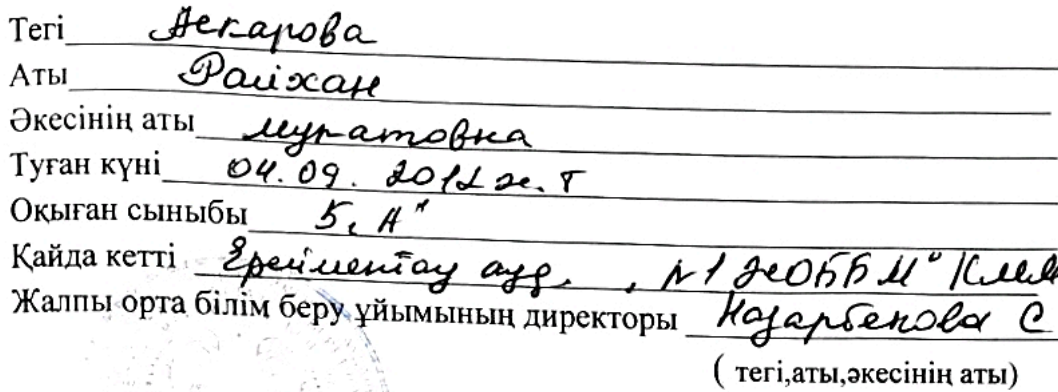 Тегі Аскарова
Аты Райхан
Әкесінің аты Муратовна
Туған күні 04.09.2012 ж.т
Оқыған сыныбы 5 "А"
Қайда кетті Ерейментау ауд. "№1 ЖОББМ" КММ
Жалпы орта білім беру ұйымының директоры Назарбекова С
( тегі,аты,әкесінің аты)